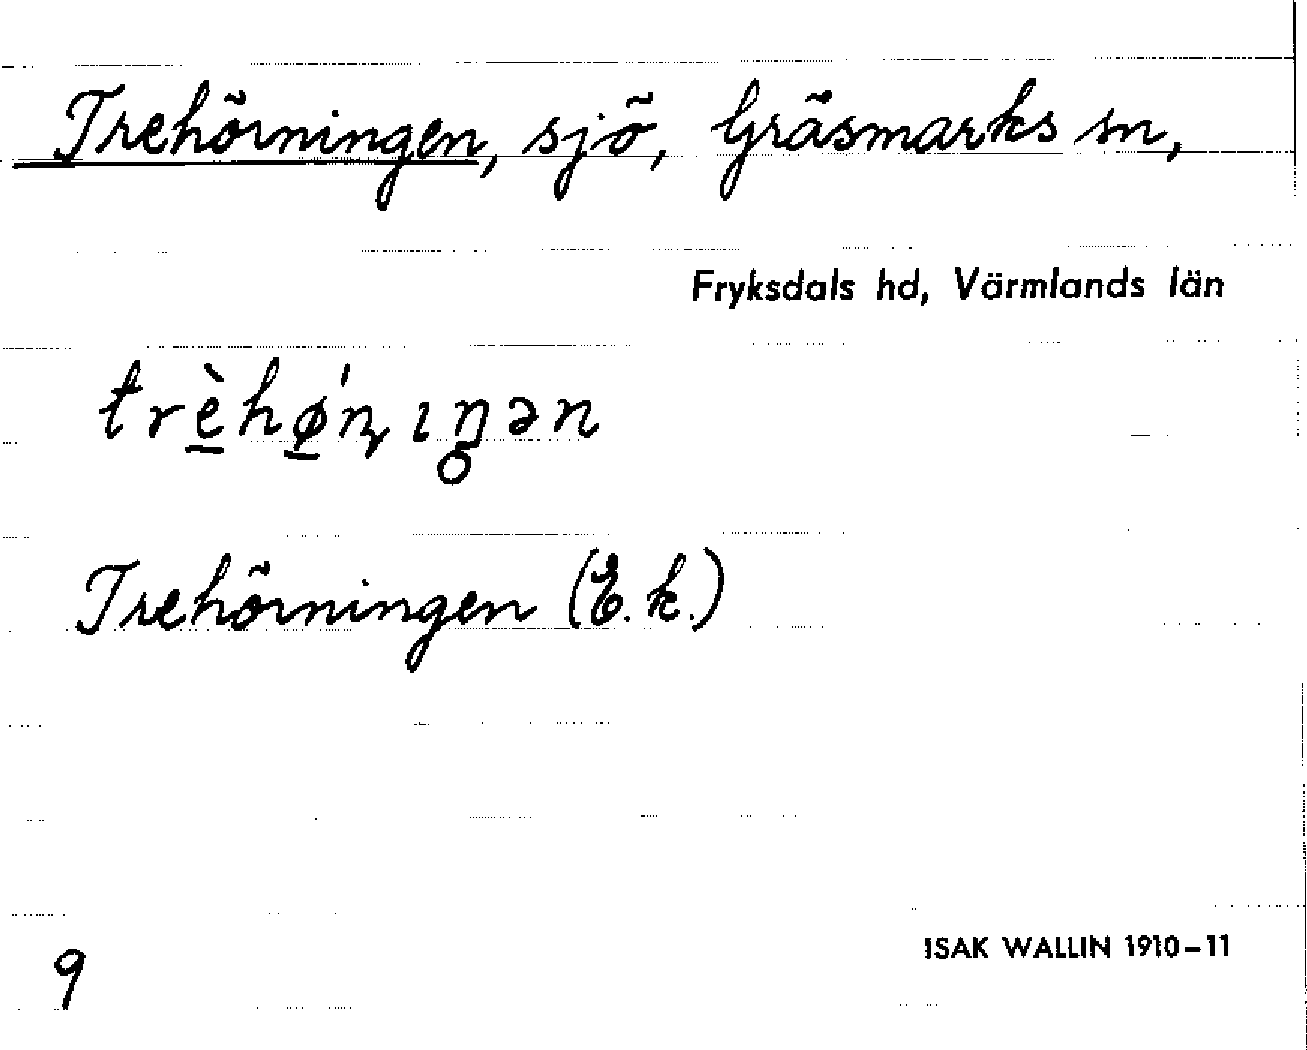 Trehörningen, sjö, Gräsmarks sn,
Fryksdals hd, Värmlands län
trè̱hǿ̱ɳıŋ̥ən
Trehörningen (E.k.)
9
ISAK WALLIN 1910–11